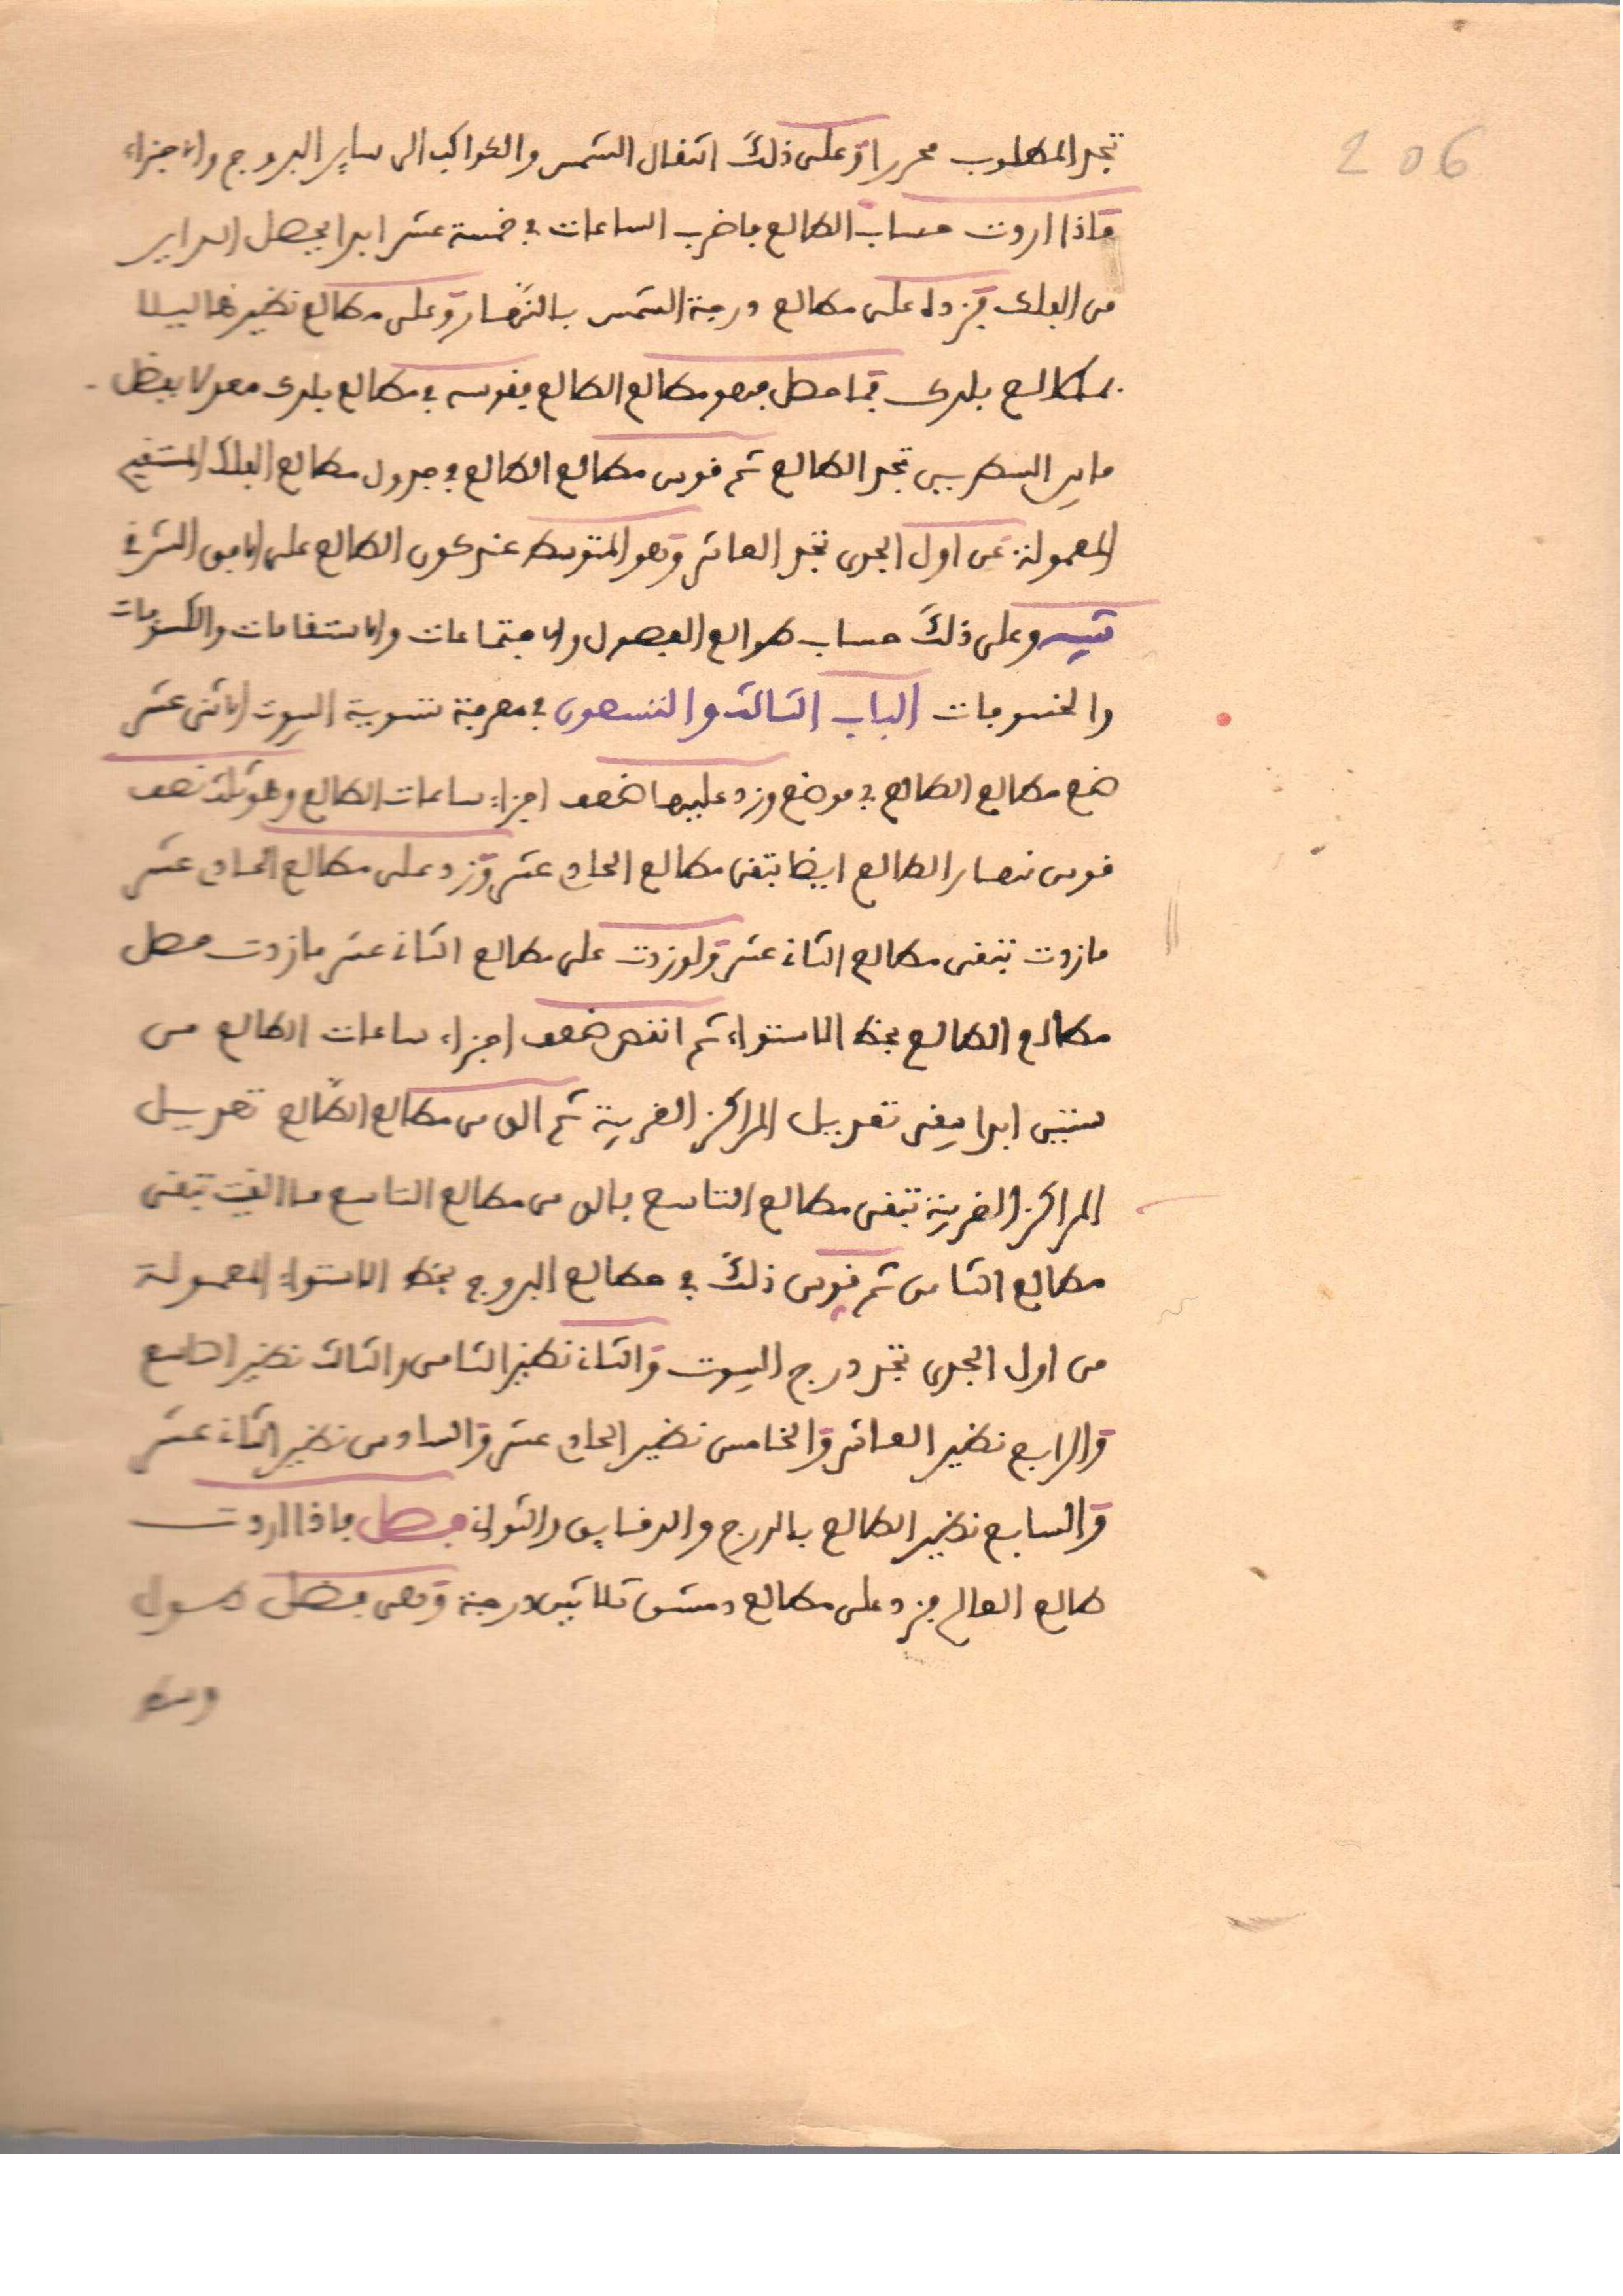 206
تجد المطلوب محررا وعلى ذلك انتقال الشمس والكواكب الى ساير البروج والاجزاء
واذا اردت حساب الطالع فاضرب الساعات في خمسة عشر ابدا يحصل الداير
من الفلك فزده على مطالع درجة الشمس بالنهار وعلى مطالع نظيرها ليلا
بمطالع بلدك فما حصل فهو مطالع الطالع فقوسه في مطالع بلدك معدلا بفضل
ما بين السطرين تجد الطالع ثم قوس مطالع الطالع في جدول مطالع الفلك المستقيم
المعمولة من اول الجدى تجد العاشر وهو المتوسط عند كون الطالع على الافق الشرقي
تنبيه وعلى ذلك حساب طوالع الفصول والاجتماعات والاستقامات والكسوفات
والخسوفات الباب الثالث والتسعون في معرفة تسوية البيوت الاثنى عشر
ضع مطالع الطالع في موضع وزد عليها ضعف اجزاء ساعات الطالع وهو ثلث نصف
قوس نهار الطالع ايضا تبقى مطالع الحادي عشر وزد على مطالع الحادي عشر
ما زدت تبقى مطالع الثاني عشر ولو زدت على مطالع الثاني عشر ما زدت حصل
مطالع الطالع بخط الاستواء ثم انقص ضعف اجزاء ساعات الطالع من
ستين ابدا يبقى تعديل المراكز الغربية ثم الق من مطالع الطالع تعديل
المراكز الغربية تبقى مطالع التاسع فالق من مطالع التاسع ما القيت تبقى
مطالع الثامن ثم قوس ذلك في مطالع البروج بخط الاستواء المعمولة
من اول الجدى تجد درج البيوت والثاني نظير الثامن والثالث نظير التاسع
والرابع نظير العاشر والخامس نظير الحادي عشر والسادس نظير الثاني عشر
والسابع نظير الطالع بالدرج والدقايق والثواني فصل فاذا اردت
طالع العالم فزد على مطالع دمشق ثلاثين درجة وهي فضل طول
وسط